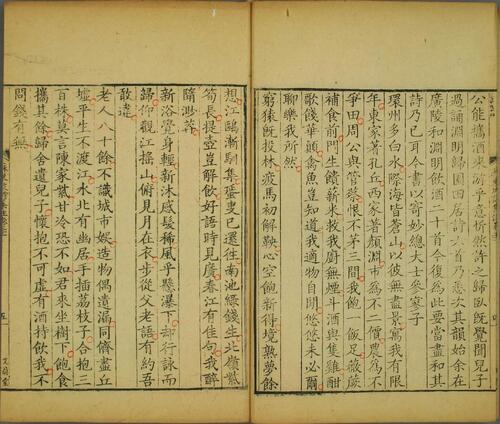 公能攜酒來游乎意忻然許之歸臥既覺聞兒子
過誦淵明歸園田居詩六首乃悉次其韻始余在
廣陵和淵明飲酒二十首今復為此要當盡和其
詩乃已耳今書以寄妙總大士參寥子
環州多白水際海皆蒼山以彼無盡景寓我有限
年東家著孔丘西家著顏淵市為不二價農為不
爭田周公與管蔡恨不茅三間我飽一飯足薇蕨
補食前門生饋薪米救我廚無煙斗酒與隻雞酣
歌餞華顛禽魚豈知道我適物自閑悠悠未必爾
聊樂我所然
窮猿既投林疲馬初解鞅心空飽新得境熟夢餘
想江鷗漸馴集蜑叟已還往南池綠錢生北嶺紫
筍長提壺豈解飲好語時見廣春江有佳句我醉
墮渺莽
新浴覺身輕新沐感髮稀風乎懸瀑下却行詠而
歸仰觀江搖山俯見月在衣步從父老語有約吾
敢違
老人八十餘不識城市娛造物偶遺漏同儕盡丘
墟平生不渡江水北有幽居手插荔枝子合抱三
百株莫言陳家紫甘冷恐不如君來坐樹下飽食
攜其餘歸舍遺兒子懷抱不可虛有酒持飲我不
問錢有無
五